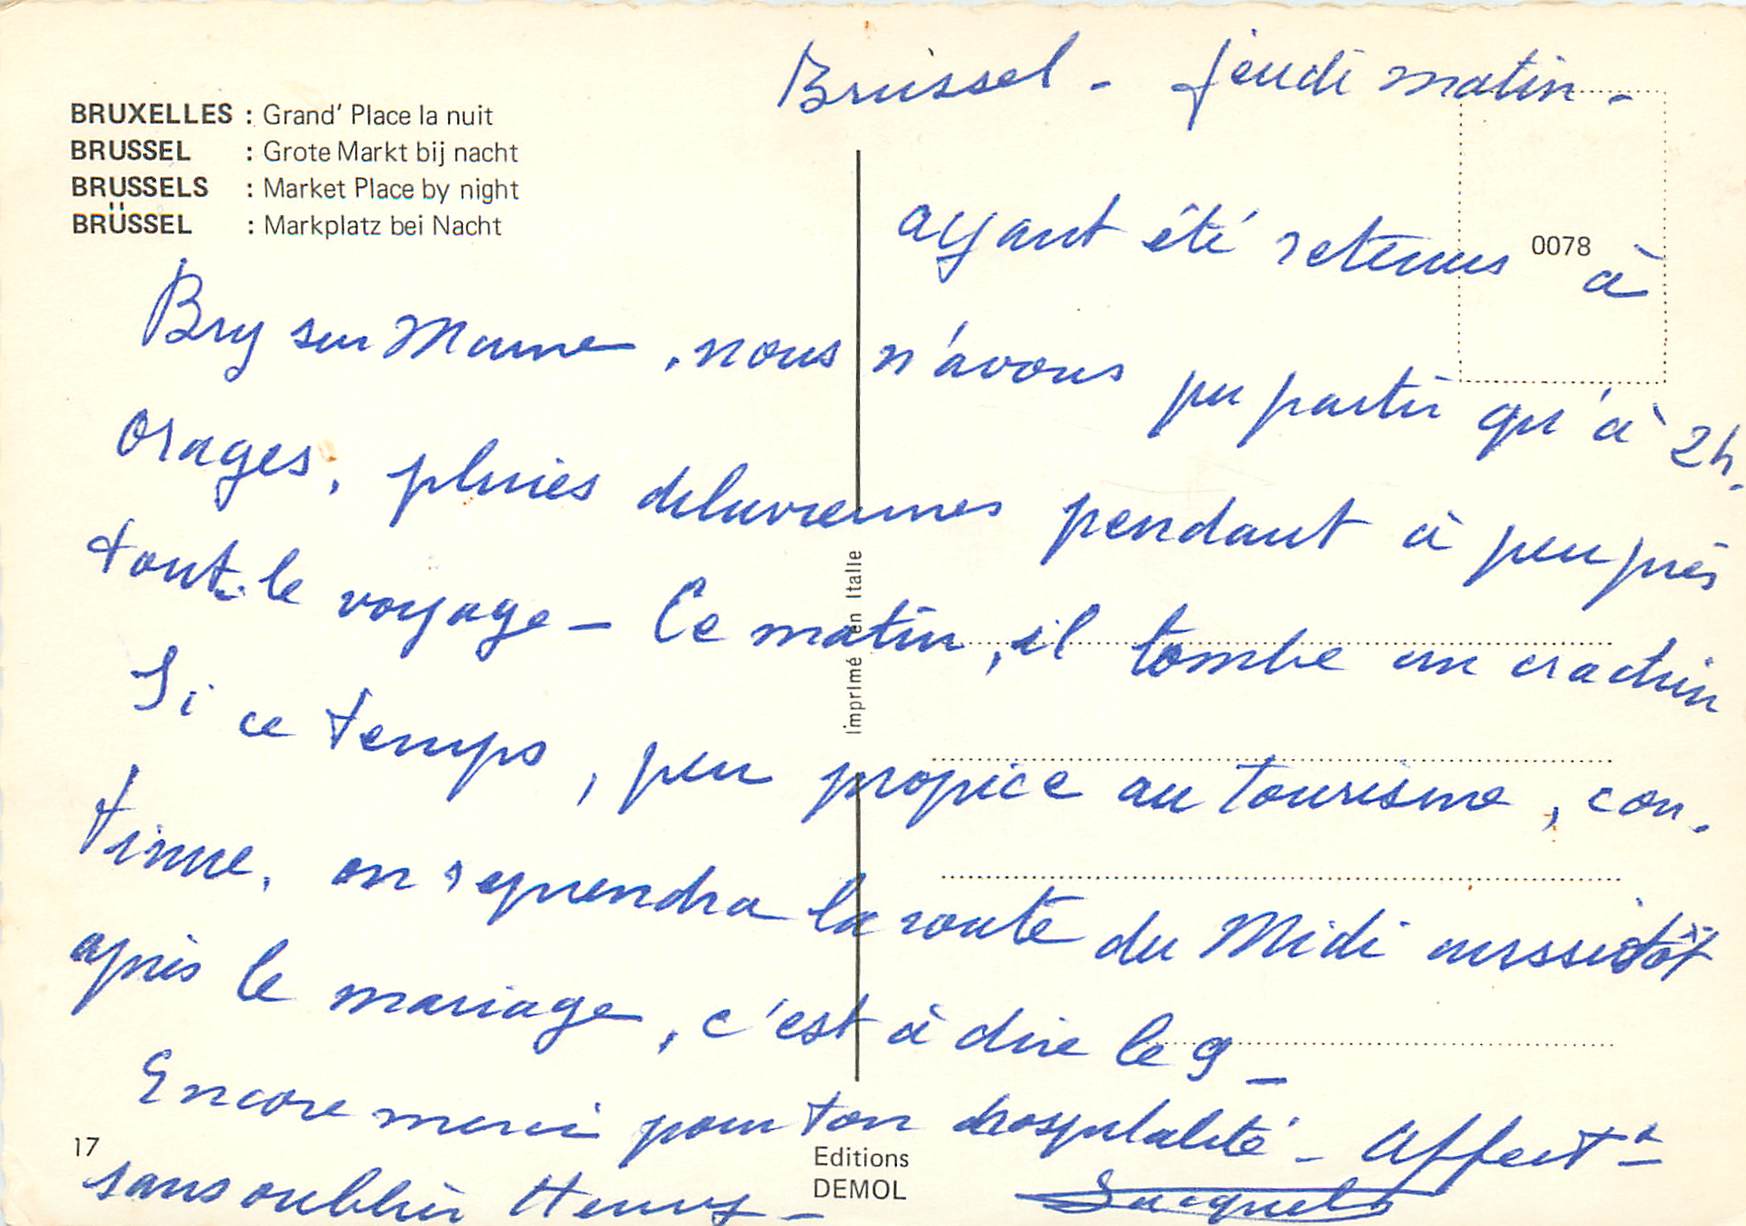 BRUXELLES : Grand' Place la nuit
BRUSSEL : Grote Markt bij nacht
BRUSSELS : Market Place by night
BRÜSSEL : Markplatz bei Nacht
0078
Brüssel - jeudi matin -
ayant été retenus à
Bry sur Marne, nous n'avons pu partir qu'à 2h.
Orages, pluies diluviennes pendant à peu près
tout le voyage - Ce matin, il tombe un crachin
Si ce temps, peu propice au tourisme, con-
tinue, on reprendra la route du Midi aussitôt
après le mariage, c'est à dire le 9 -
Encore merci pour ton hospitalité - Affectt
sans oublier
Imprimé en Italie
17
Editions
DEMOL